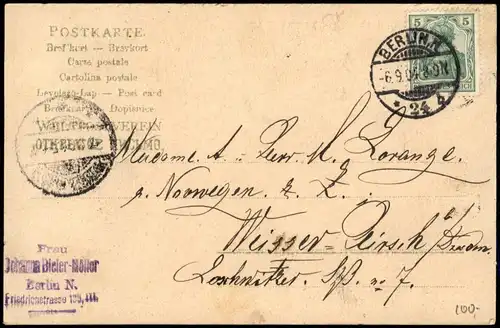 POSTKARTE
Brefkort — Brevkort
Carte postale
Cartolina postale
Levelezö-Lap — Post card
Dopisnice
WELTPOSTVEREIN
5
BERLIN.N.
-6.9.04.8-9N.
* 24 b
Madame A. Perr. M. Lorange.
a. Norwegen z. Z.
Weisser-Hirsch
Loschwitzer. No 7.
Frau
Johanna Bieler-Möller
Berlin N.
Friedrichstrasse III.
100-